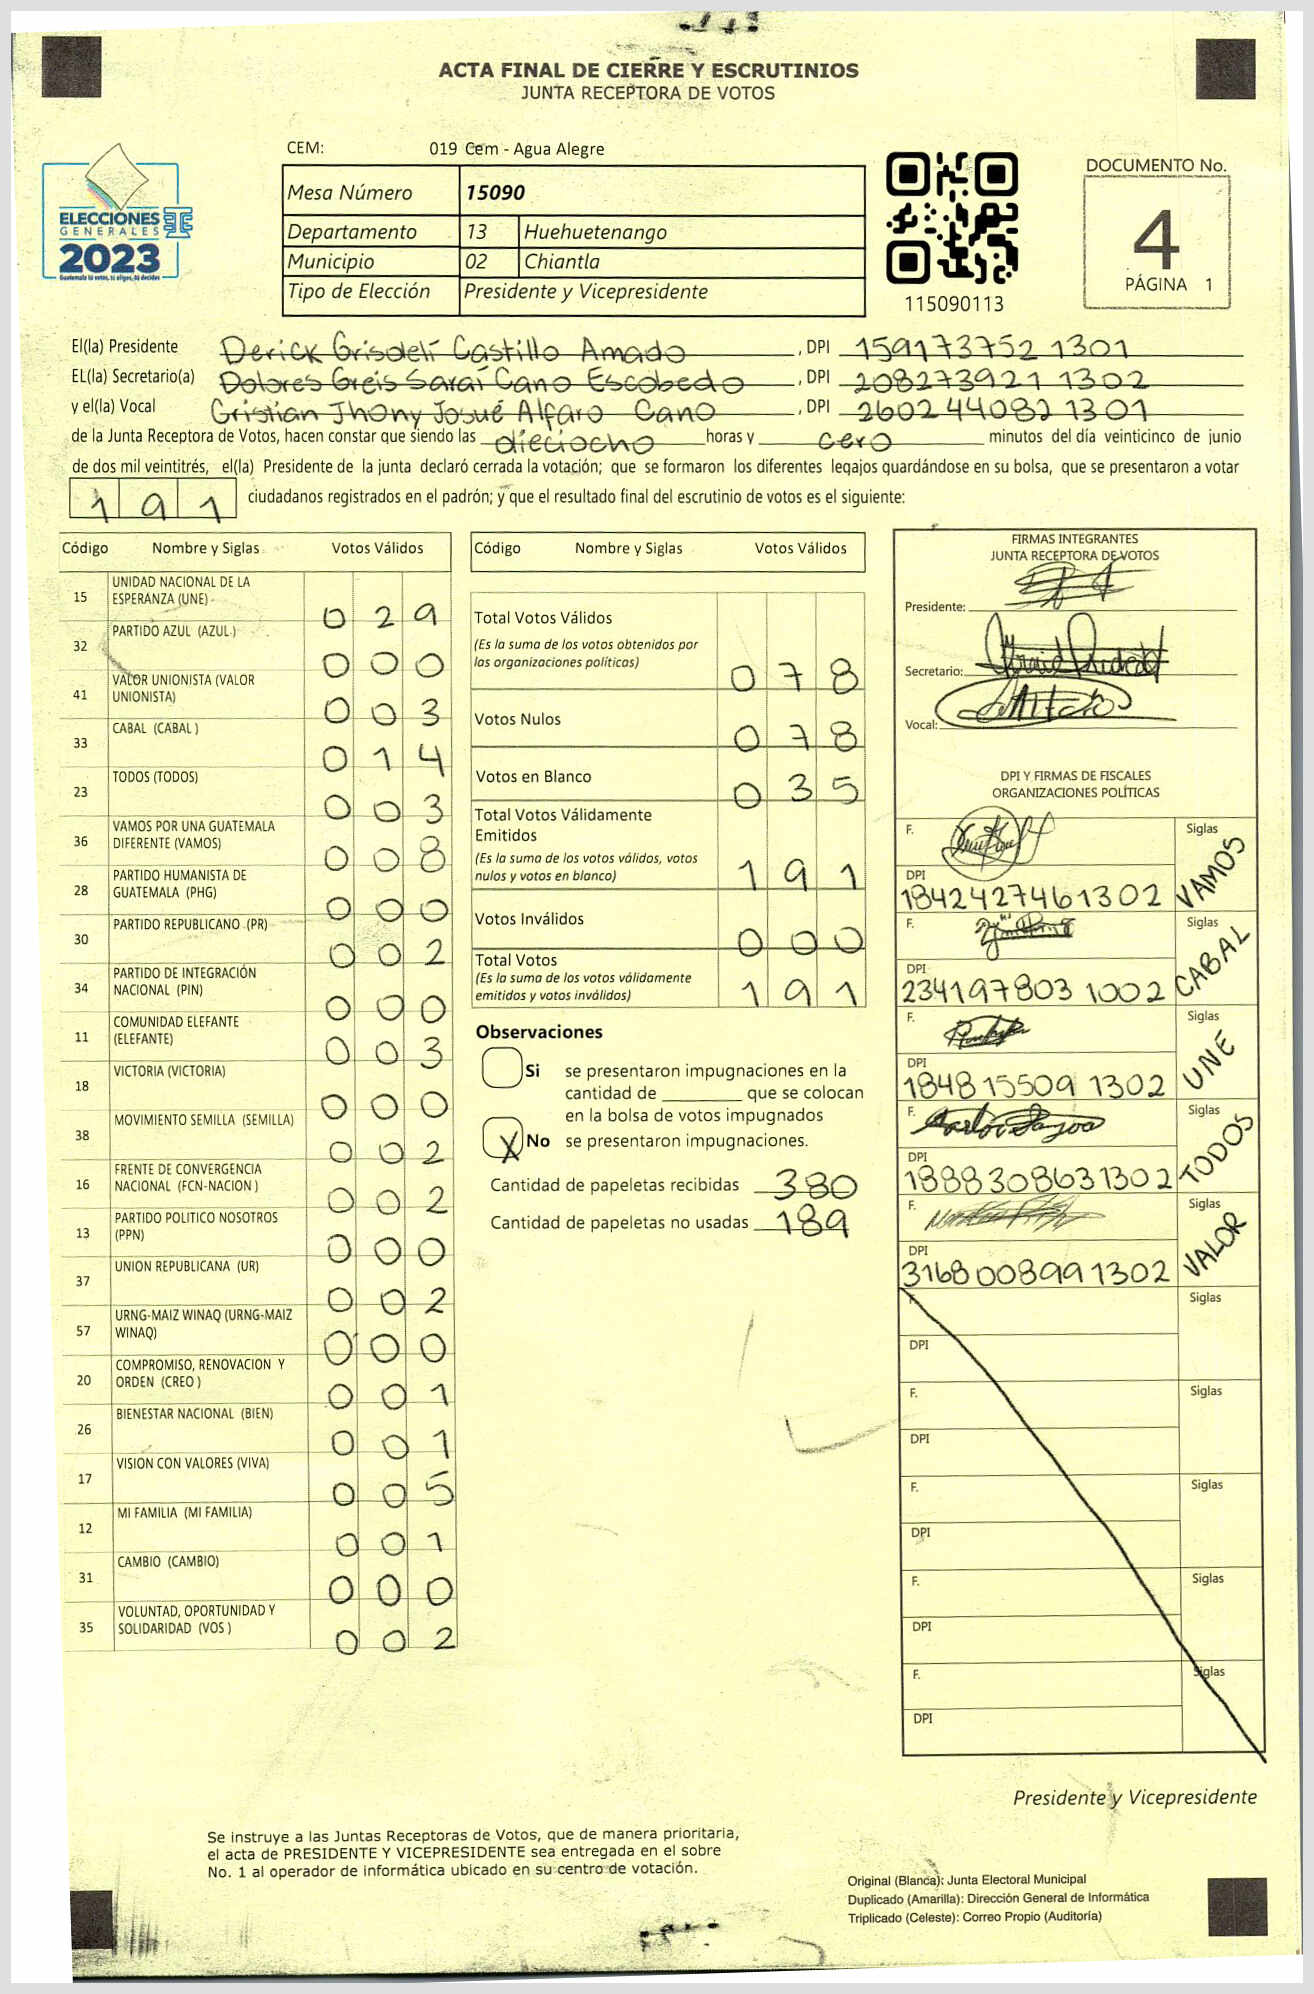 ACTA FINAL DE CIERRE Y ESCRUTINIOS
JUNTA RECEPTORA DE VOTOS
CEM: 019 Cem - Agua Alegre
ELECCIONES
GENERALES
2023
Guatemala tú votas, tú eliges, tú decides
Mesa Número 15090
Departamento 13 Huehuetenango
Municipio 02 Chiantla
Tipo de Elección Presidente y Vicepresidente
115090113
DOCUMENTO No.
4
PÁGINA 1
El(la) Presidente Derick Grisdelí Castillo Amado , DPI 159173752 1301
EL(la) Secretario(a) Dolores Greis Saraí Cano Escobedo , DPI 208273921 1302
y el(la) Vocal Cristian Jhony Josué Alfaro Cano , DPI 260244082 1301
de la Junta Receptora de Votos, hacen constar que siendo las dieciocho horas y cero minutos del día veinticinco de junio
de dos mil veintitrés, el(la) Presidente de la junta declaró cerrada la votación; que se formaron los diferentes legajos guardándose en su bolsa, que se presentaron a votar
191 ciudadanos registrados en el padrón; y que el resultado final del escrutinio de votos es el siguiente:
Código Nombre y Siglas Votos Válidos
15 UNIDAD NACIONAL DE LA ESPERANZA (UNE) 029
32 PARTIDO AZUL (AZUL) 000
41 VALOR UNIONISTA (VALOR UNIONISTA) 003
33 CABAL (CABAL ) 014
23 TODOS (TODOS) 003
36 VAMOS POR UNA GUATEMALA DIFERENTE (VAMOS) 008
28 PARTIDO HUMANISTA DE GUATEMALA (PHG) 000
30 PARTIDO REPUBLICANO (PR) 002
34 PARTIDO DE INTEGRACIÓN NACIONAL (PIN) 000
11 COMUNIDAD ELEFANTE (ELEFANTE) 003
18 VICTORIA (VICTORIA) 000
38 MOVIMIENTO SEMILLA (SEMILLA) 002
16 FRENTE DE CONVERGENCIA NACIONAL (FCN-NACION ) 002
13 PARTIDO POLITICO NOSOTROS (PPN) 000
37 UNION REPUBLICANA (UR) 002
57 URNG-MAIZ WINAQ (URNG-MAIZ WINAQ) 000
20 COMPROMISO, RENOVACION Y ORDEN (CREO ) 001
26 BIENESTAR NACIONAL (BIEN) 001
17 VISION CON VALORES (VIVA) 005
12 MI FAMILIA (MI FAMILIA) 001
31 CAMBIO (CAMBIO) 000
35 VOLUNTAD, OPORTUNIDAD Y SOLIDARIDAD (VOS ) 002
Código Nombre y Siglas Votos Válidos
Total Votos Válidos
(Es la suma de los votos obtenidos por
las organizaciones políticas) 078
Votos Nulos 078
Votos en Blanco 035
Total Votos Válidamente
Emitidos
(Es la suma de los votos válidos, votos
nulos y votos en blanco) 191
Votos Inválidos 000
Total Votos
(Es la suma de los votos válidamente
emitidos y votos inválidos) 191
Observaciones
Si se presentaron impugnaciones en la
cantidad de ________ que se colocan
en la bolsa de votos impugnados
X No se presentaron impugnaciones.
Cantidad de papeletas recibidas 380
Cantidad de papeletas no usadas 189
FIRMAS INTEGRANTES
JUNTA RECEPTORA DE VOTOS
Presidente:
Secretario:
Vocal:
DPI Y FIRMAS DE FISCALES
ORGANIZACIONES POLÍTICAS
F. Siglas VAMOS
DPI
1842427461302
F. Siglas CABAL
DPI
234197803 1002
F. Siglas UNE
DPI
184815509 1302
F. Siglas TODOS
DPI
1888308631302
F. Siglas VALOR
DPI
3168008991302
F. Siglas
DPI
F. Siglas
DPI
F. Siglas
DPI
F. Siglas
DPI
F. Siglas
DPI
Presidente y Vicepresidente
Se instruye a las Juntas Receptoras de Votos, que de manera prioritaria,
el acta de PRESIDENTE Y VICEPRESIDENTE sea entregada en el sobre
No. 1 al operador de informática ubicado en su centro de votación.
Original (Blanca): Junta Electoral Municipal
Duplicado (Amarilla): Dirección General de Informática
Triplicado (Celeste): Correo Propio (Auditoría)